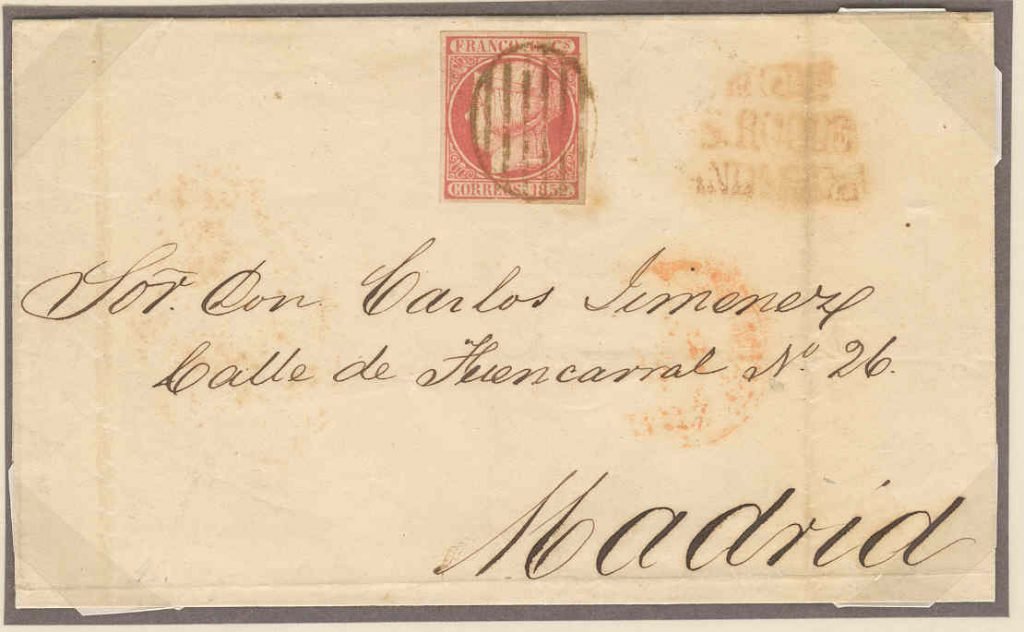 FRANCO Cs
CORREOS. 1852.
Sor. Don Carlos Jimenez
Calle de Fuencarral No. 26.
Madrid